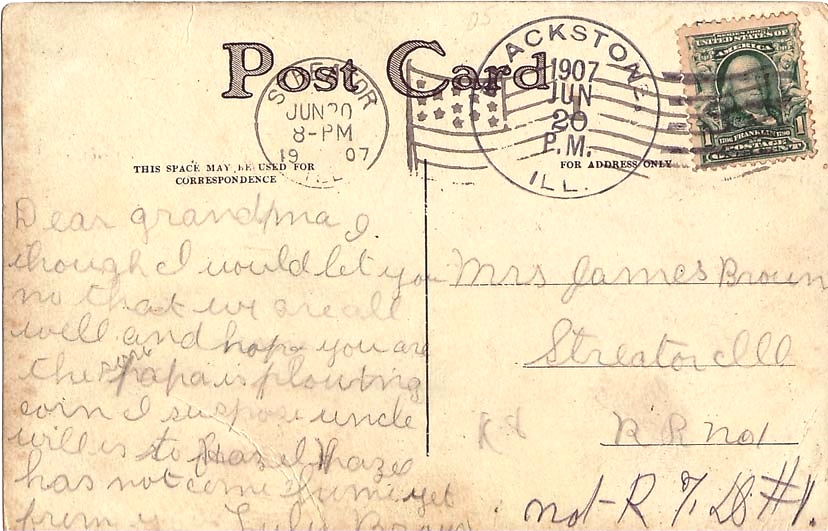 Post Card
STREATOR
JUN 20
8-PM
19 07
ILL.
BLACKSTONE,
1907
JUN
20
P.M.
ILL.
SERIES 1902
UNITED STATES OF
AMERICA
1 FRANKLIN 1
POSTAGE
THIS SPACE MAY BE USED FOR
CORRESPONDENCE
FOR ADDRESS ONLY
Dear grandma I
though I would let you
no that we are all
well and hope you are
the same papa is plowing
corn I suspose uncle
will is to Hazel
has not come home yet
from Lulu Brown
Mrs James Brown
Streator Ill
R R no 1
not - R. F. D. #1.